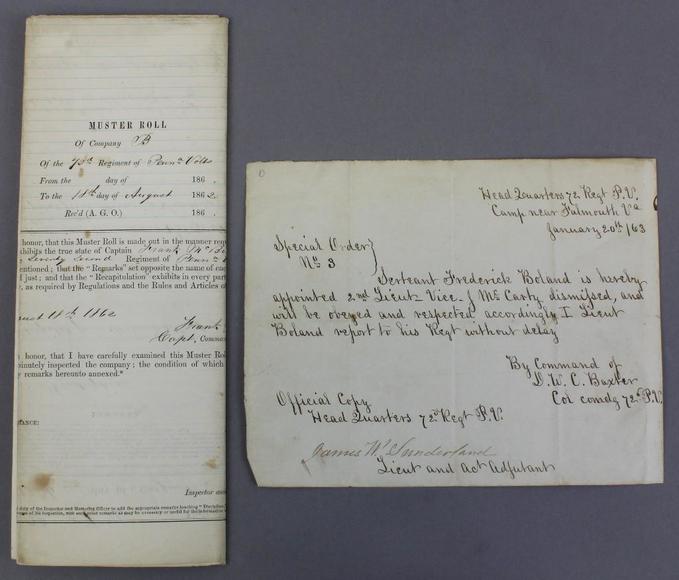 MUSTER ROLL
Of Company B
Of the 72d Regiment of Penna Volts
From the day of 186 .
To the 18th day of August 1862.
Rec'd (A. G. O.) 186 .
honor, that this Muster Roll is made out in the manner req
xhibits the true state of Captain Frank Mc
Seventy Second Regiment of Penna V
entioned; that the "Remarks" set opposite the name of eac
just; and that the "Recapitulation" exhibits in every part
, as required by Regulations and the Rules and Articles o
ust 18th 1862
Frank
Capt, Comman
honor, that I have carefully examined this Muster Rol
inutely inspected the company; the condition of which
remarks hereunto annexed."
Inspector an
duty of the Inspector and Mustering Officer to add the appropriate remarks touching "Discipline
Head Quarters 72 Regt P.V.
Camp near Falmouth Va
January 20th /63
Special Order }
No 3
Serteant Frederick Boland is hereby
appointed 2nd Lieut Vice J McCarty dismissed, and
will be obeyed and respected accordingly I Lieut
Boland report to his Regt without delay
By Command of
D. W. C. Baxter
Col comdg 72d P.V.
Official Copy
Head Quarters 72d Regt P.V.
James W. Sunderland
Lieut and act Adjutant